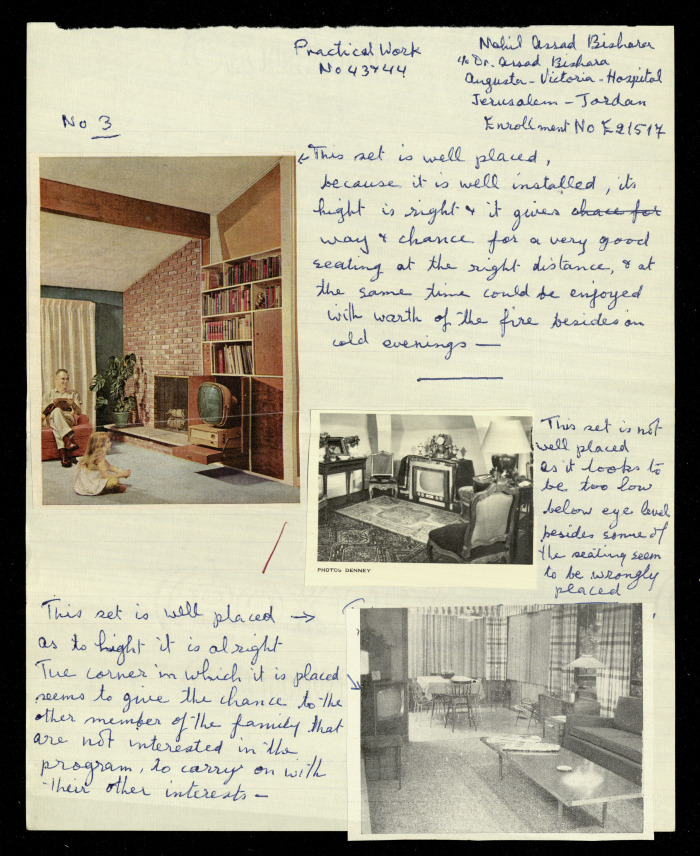 Practical Work
No 43 & 44
Mahil Assad Bishara
c/o Dr. Assad Bishara
Augusta-Victoria-Hospital
Jerusalem - Jordan
Enrollment No E21517
No 3
This set is well placed,
because it is well installed, its
hight is right & it gives chace for
way & chance for a very good
seating at the right distance, & at
the same time could be enjoyed
with warth of the fire besides on
cold evenings —
This set is not
well placed
as it looks to
be too low
below eye level
besides some of
the seating seem
to be wrongly
placed
PHOTOS DENNEY
This set is well placed →
as to hight it is alright
The corner in which it is placed
seems to give the chance to the
other member of the family that
are not interested in the
program, to carry on with
their other interests —